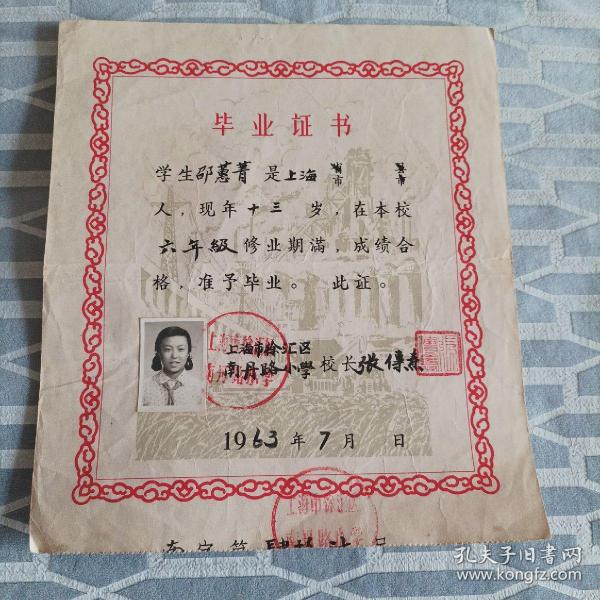 毕业证书
学生邵蕙菁是上海省市县市
人，现年十三岁，在本校
六年级修业期满，成绩合
格，准予毕业。此证。
上海市徐汇区
南丹路小學校长张傳燾
1963年7月日
孔夫子旧书网
www.kongfz.com